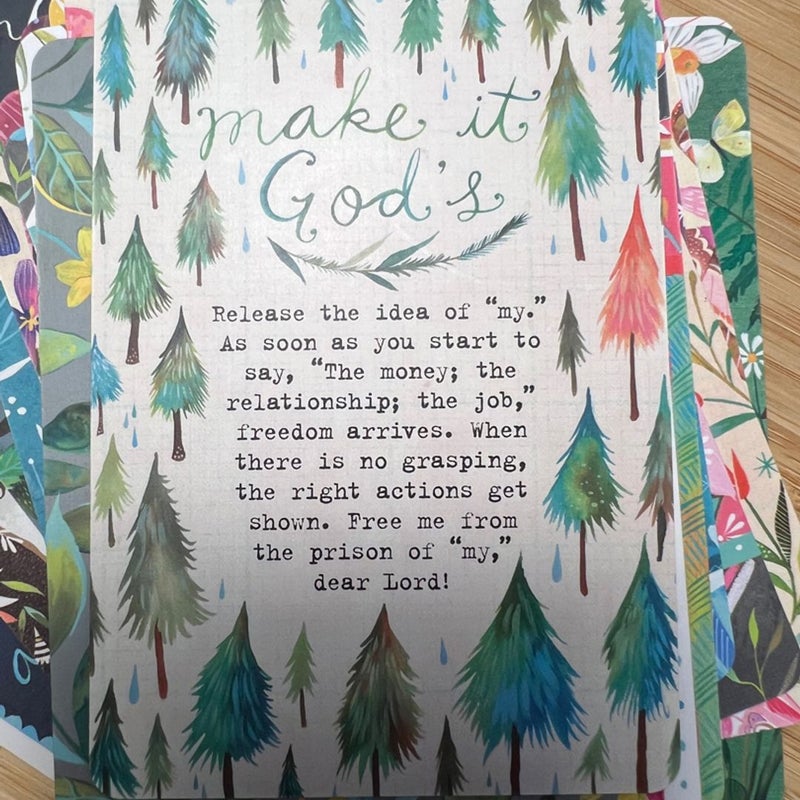 make it
God's
Release the idea of “my.”
As soon as you start to
say, “The money; the
relationship; the job,”
freedom arrives. When
there is no grasping,
the right actions get
shown. Free me from
the prison of “my,”
dear Lord!